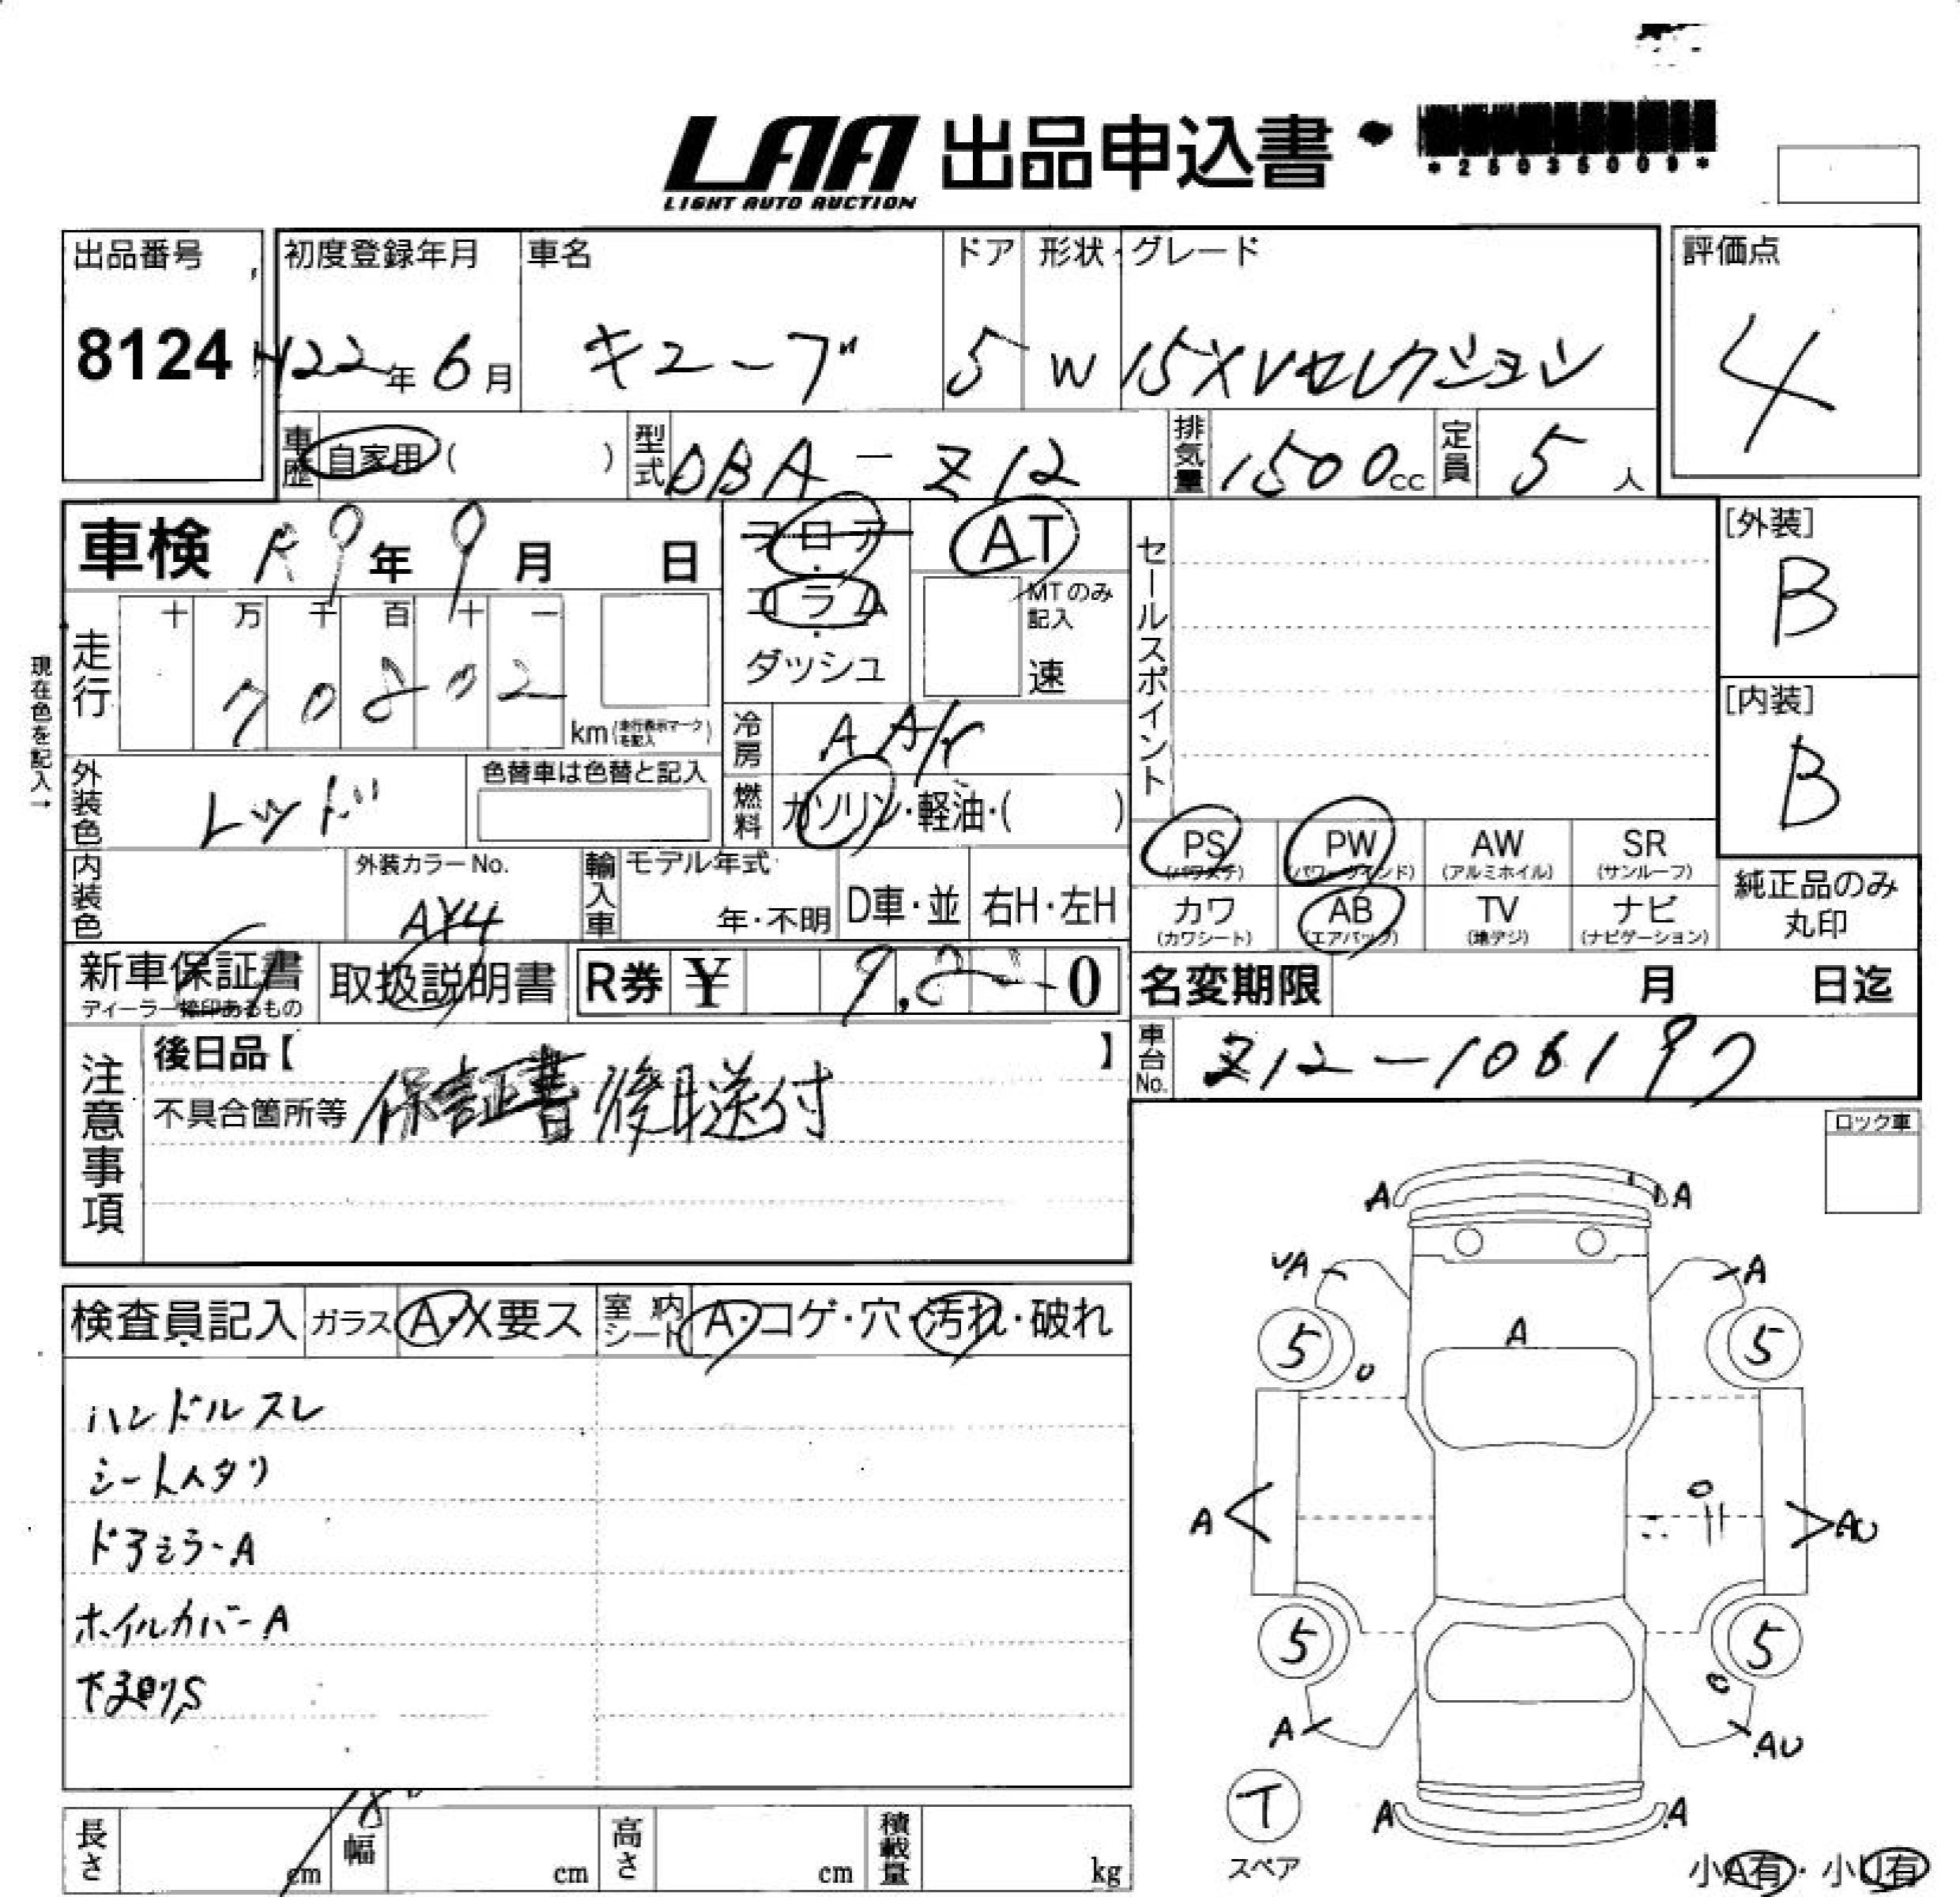 LAA 出品申込書
LIGHT AUTO AUCTION
*25035009*
出品番号 初度登録年月 車名 ドア 形状・グレード 評価点
8124 H22年 6月 キューブ 5 W 15X Vセレクション 4
車歴 自家用 ( ) 型式 DBA-Z12 排気量 1500cc 定員 5人
車検 R9年 9月 日
フロア・
コラム・
ダッシュ
AT
MTのみ記入
速
セールスポイント
[外装]
B
[内装]
B
現在色を記入→
走行 十 万 千 百 十 一
70802 km (走行表示マークを記入)
冷房 AAC
燃料 ガソリン・軽油・( )
外装色 レッド 色替車は色替と記入
内装色 外装カラーNo. AY4 輸入車 モデル年式 年・不明 D車・並 右H・左H
PS (パワステ) PW (パワーウインド) AW (アルミホイル) SR (サンルーフ)
カワ (カワシート) AB (エアバッグ) TV (地デジ) ナビ (ナビゲーション)
純正品のみ丸印
新車保証書 ディーラー捺印あるもの 取扱説明書 R券 ¥ 0
名変期限 月 日迄
車台No. Z12-106197
注意事項
後日品【 】
不具合箇所等 保証書後日送付
ロック車
検査員記入 ガラス A・X要ス 室内シート A・コゲ・穴・汚れ・破れ
ハンドルスレ
シートヘタリ
ドアミラーA
ホイルカバーA
下まわりS
A A
UA A
5 A 5
A AU
5 5
A AU
T
スペア
A A
小A有・小U有
長さ cm 幅 cm 高さ cm 積載量 kg